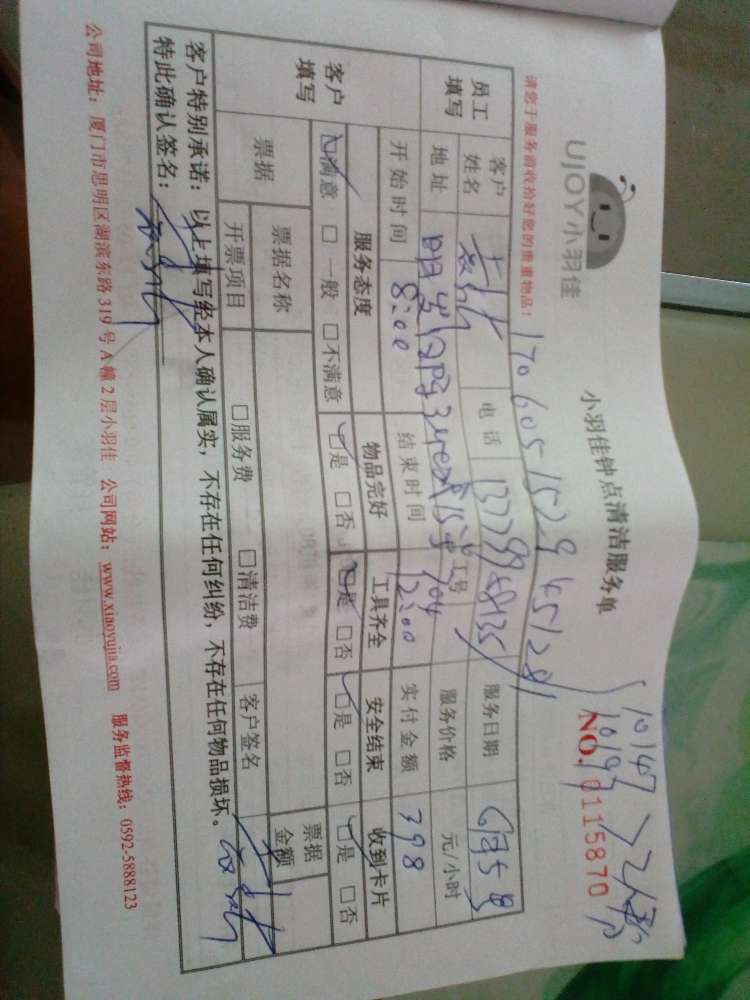 UJOY小羽佳
小羽佳钟点清洁服务单
NO. 0115870
请您于服务前收拾好您的贵重物品!
170605152945128
10147
员工填写
客户姓名
电话
服务日期 6月5号
地址
工号 704
服务价格 元/小时
开始时间 8:00 结束时间 12:00 实付金额 398
客户填写
服务态度 物品完好 工具齐全 安全结束 收到卡片
□满意 □一般 □不满意 □是 □否 □是 □否 □是 □否 □是 □否
票据 票据名称 票据金额
开票项目 □服务费 □清洁费 客户签名
客户特别承诺:以上填写经本人确认属实,不存在任何纠纷,不存在任何物品损坏。
特此确认签名:
公司地址:厦门市思明区湖滨东路319号A幢2层小羽佳 公司网站:www.xiaoyujia.com 服务监督热线:0592-5888123